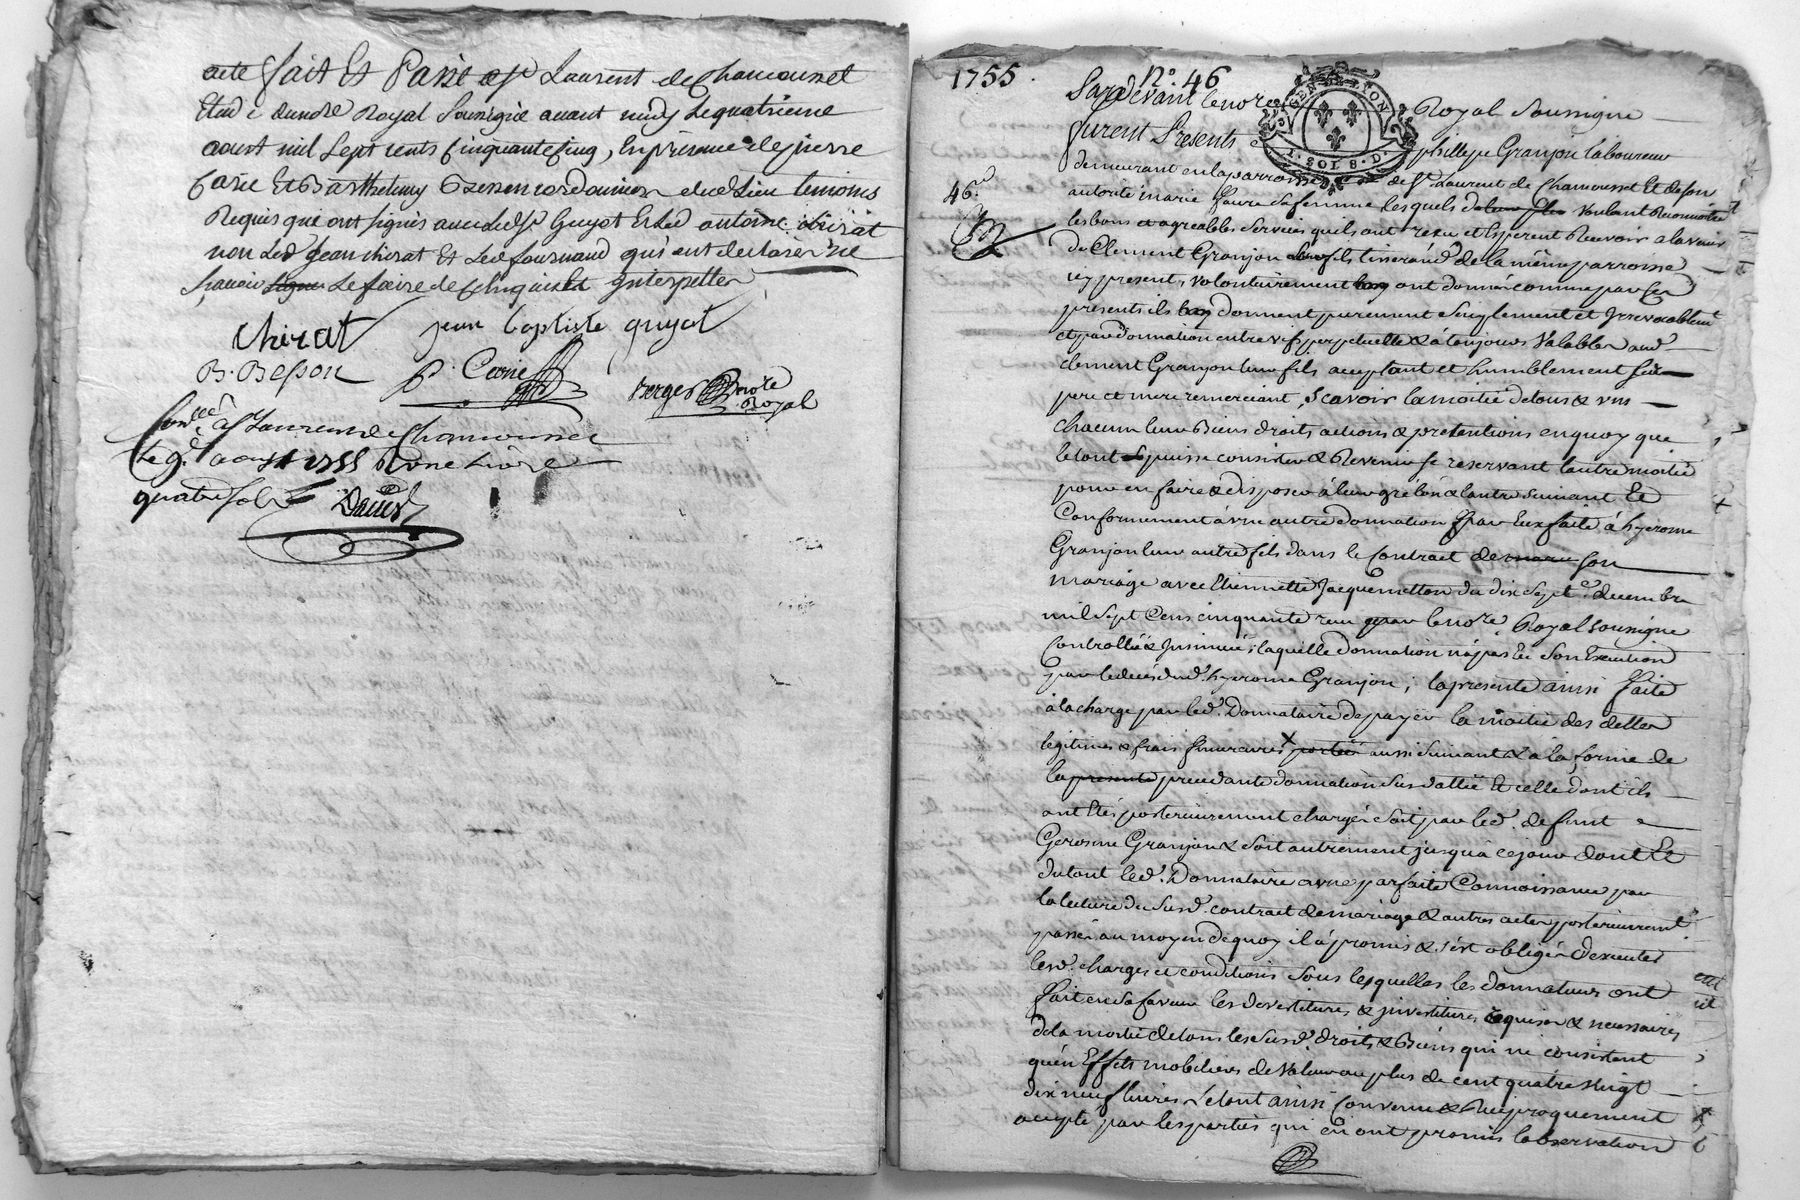 acte fait Et Passé a St Laurent de Chamousset
Etude dundit Royal Soussigné avant midy Le quatrieme
aoust mil Sept cents Cinquante Cinq, En présence de pierre
Carié Et Barthelemy Besson cordonnier dud Lieu temoins
Requis que ont signés avec led Sr Guyot Et Led antoine chirat
non Led Jean chirat Et Led fournand qui ont declarer ne
Sçavoir signer Le faire de Ce Enquis Et Interpeller
chirat jean baptiste guyot
B. Besson p. Carié
Berger nore Royal
Conllé a St Laurens de Chamousset
Le 9e aoust 1755 Reçu
quatre sols
1755. No. 46
GEN LYON
I. SOLS. D.
Pardevant le nore Royal Soussigné
furent Présents phillipe Granjon laboureur
demeurant en la parroisse de St. Laurent de Chamousset Et de son
46e
autorité marie faure sa femme lesquels voulant Reconnoitre
les bons et agreables Services quils ont reçu et Esperent Recevoir a lavenir
de Clement Granjon leur fils tisserand de la même parroisse
icy present, volontairement ont donné comme par Ces
presents ils donnent purement Simplement et Irrevocablemt
et par donnation entre vifs perpetuelle & à toujours Valable aud
clement Granjon leur fils acceptant et humblement sesd
pere et mere remerciant, Scavoir la moitié de tous & uns
chacuns leurs Biens droits actions & prétentions en quoy que
le tout puisse consister & Revenir se reservant lautre moitié
pour en faire & disposer à leur gré
Conformement à une autre donnation par Eux faite à hyerome
Granjon leur autre fils dans le Contract de son
mariage avec Etiennette Jacquemetton du dix Sept Xe decembre
mil Sept Cens cinquante reçu par le nore. Royal soussigné
Controllé & Insinué; laquelle donnation n'a pas Eu Son Execution
par le deces dud. hyerome Granjon; la presente ainsi faite
à la charge par led. Donnataire de payer la moitié des dettes
legitimes & frais funeraires X portées aussi Suivant & à la forme de
la presente precedante donnation Susdattée Et celle dont ils
ont Etés posterieurement chargés Soit par led. defunt
Gerosme Granjon & Soit autrement jusqu'à ce jour dont Et
du tout led. Donnataire a une parfaite Connoissance par
la lecture du Susd. contract de mariage & autres actes posterieurement
passés au moyen de quoy il a promis & s'est obligé d'executer
lesd. charges et conditions Sous lesquelles les donnateurs ont
fait en sa faveur les devestitures & investitures requises & necessaires
de la moitié de tous les Susd. droits & Biens qui ne consistent
qu'en Effets mobiliers de Valeur au plus de cent quatre vingt
dix neuf livres, le tout ainsi Convenu & Reciproquement
accepté par les parties qui en ont promis lobservation